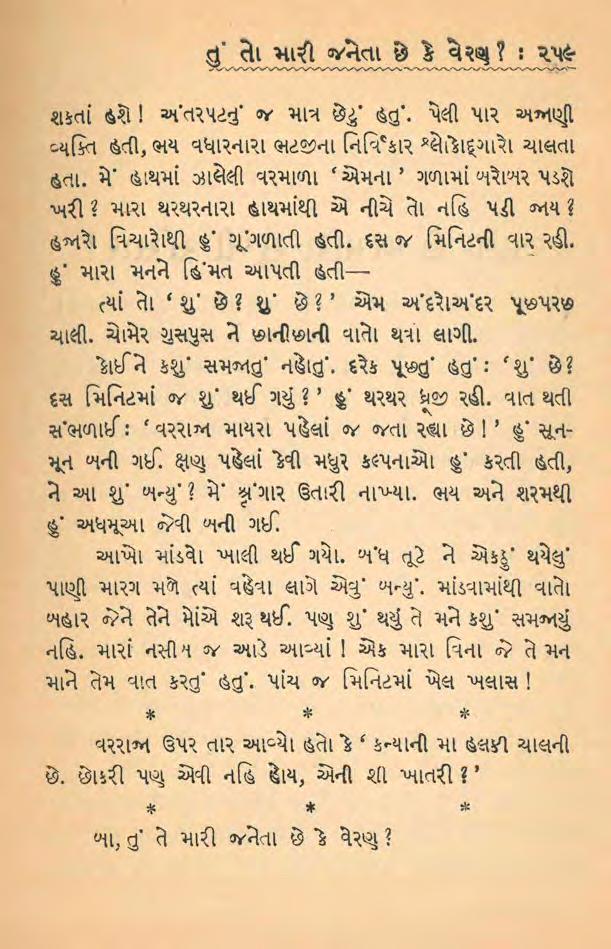 તું તો મારી જનેતા છે કે વેરણ? : ૨૫૯
શકતાં હશે! અંતરપટનું જ માત્ર છેટું હતું. પેલી પાર અજાણી
વ્યક્તિ હતી, ભય વધારનારા ભટજીના નિર્વિકાર શ્લોકોદ્ગારો ચાલતા
હતા. મેં હાથમાં ઝાલેલી વરમાળા ‘એમના’ ગળામાં બરોબર પડશે
ખરી? મારા થરથરનારા હાથમાંથી એ નીચે તો નહિ પડી જાય?
હજારો વિચારોથી હું ગૂંગળાતી હતી. દસ જ મિનિટની વાર રહી.
હું મારા મનને હિંમત આપતી હતી—
ત્યાં તો ‘શું છે? શું છે?’ એમ અંદરોઅંદર પૂછપરછ
ચાલી. ચોમેર ગુસપુસ ને છાનીછાની વાતો થવા લાગી.
કોઈને કશું સમજાતું નહોતું. દરેક પૂછતું હતું : ‘શું છે?
દસ મિનિટમાં જ શું થઈ ગયું?’ હું થરથર ધ્રૂજી રહી. વાત થતી
સંભળાઈ : ‘વરરાજા માયરા પહેલાં જ જતા રહ્યા છે!’ હું સૂન-
મૂન બની ગઈ. ક્ષણ પહેલાં કેવી મધુર કલ્પનાઓ હું કરતી હતી,
ને આ શું બન્યું? મેં શ્રૃંગાર ઉતારી નાખ્યા. ભય અને શરમથી
હું અધમૂઆ જેવી બની ગઈ.
આખો માંડવો ખાલી થઈ ગયો. બંધ તૂટે ને એકઠું થયેલું
પાણી મારગ મળે ત્યાં વહેવા લાગે એવું બન્યું. માંડવામાંથી વાતો
બહાર જેને તેને મોંએ શરૂ થઈ. પણ શું થયું તે મને કશું સમજાયું
નહિ. મારાં નસીબ જ આડે આવ્યાં! એક મારા વિના જે તે મન
માને તેમ વાત કરતું હતું. પાંચ જ મિનિટમાં ખેલ ખલાસ!
* * *
વરરાજા ઉપર તાર આવ્યો હતો કે ‘કન્યાની મા હલકી ચાલની
છે. છોકરી પણ એવી નહિ હોય, એની શી ખાતરી?’
* * *
બા, તું તે મારી જનેતા છે કે વેરણ?